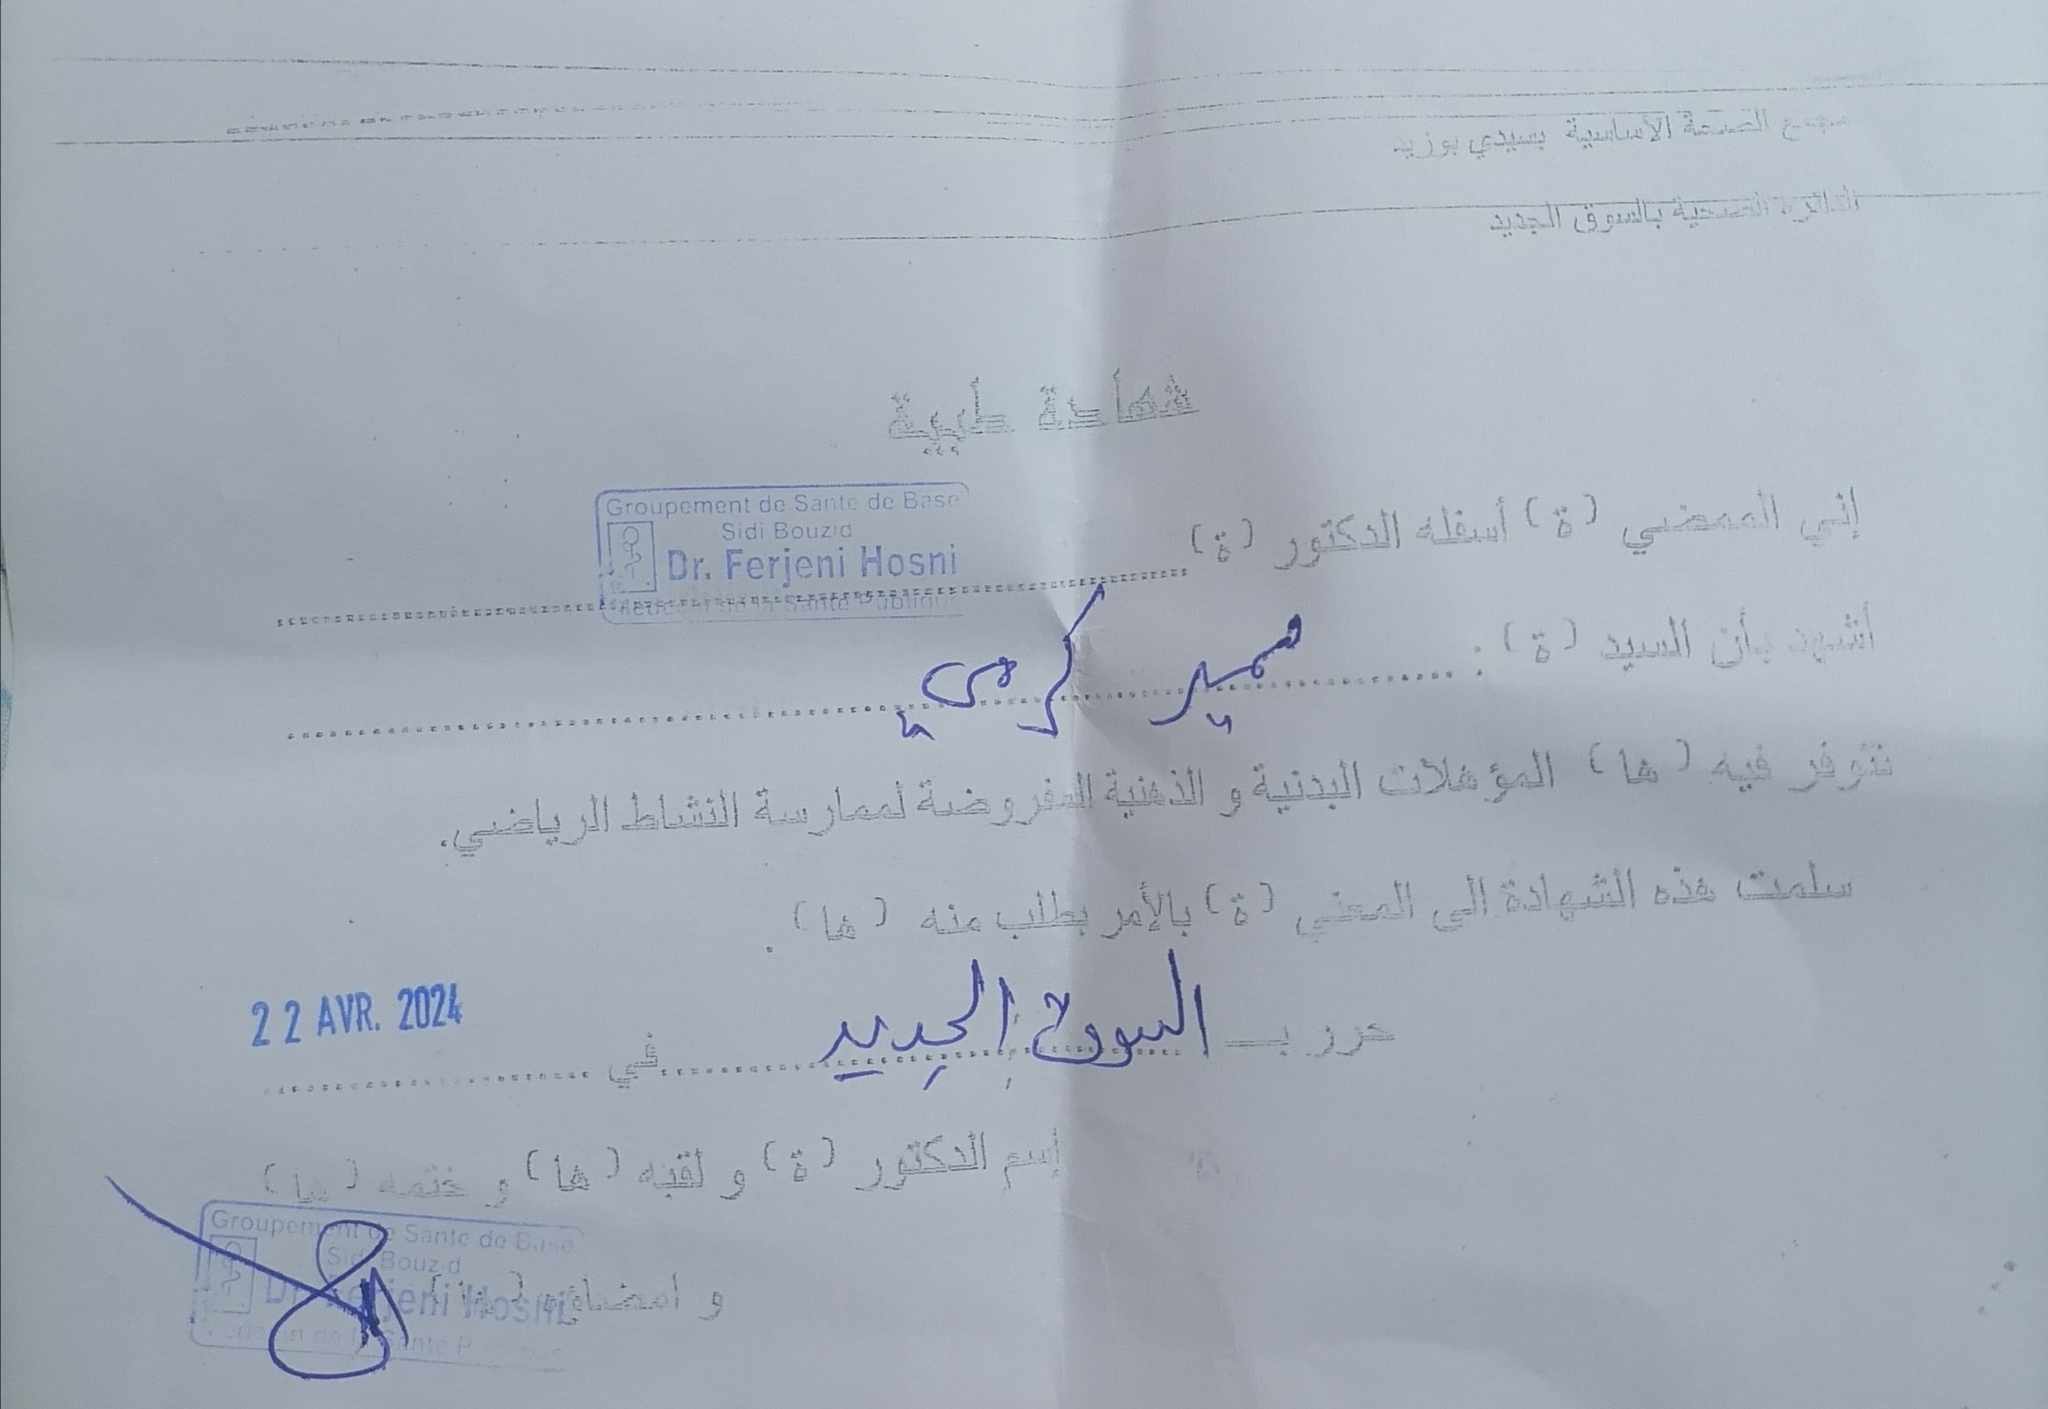 مجمع الصحة الأساسية بسيدي بوزيد
الدائرة الصحية بالسوق الجديد
شهادة طبية
إني الممضي (ة) أسفله الدكتور (ة)
Groupement de Sante de Base
Sidi Bouzid
Dr. Ferjeni Hosni
de la Sante Publique
أشهد بأن السيد (ة) : سمير كرمي
تتوفر فيه (ها) المؤهلات البدنية و الذهنية المفروضة لممارسة النشاط الرياضي.
سلمت هذه الشهادة إلى المعني (ة) بالأمر بطلب منه (ها) .
حرر بـ السوق الجديد في 22 AVR. 2024
إسم الدكتور (ة) و لقبه (ها) و ختمه (ها)
و امضائه (ها)
Groupement de Sante de Base
Sidi Bouzid
Dr. Ferjeni Hosni